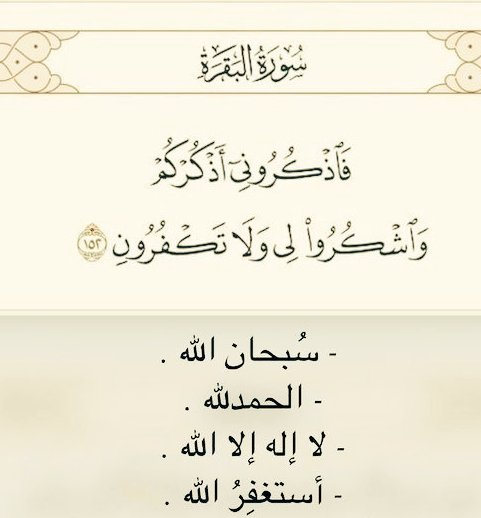 سُورَةُ البَقَرَةِ
فَٱذْكُرُونِىٓ أَذْكُرْكُمْ
وَٱشْكُرُوا۟ لِى وَلَا تَكْفُرُونِ ١٥٢
- سُبحان الله .
- الحمدلله .
- لا إله إلا الله .
- أستغفِرُ الله .